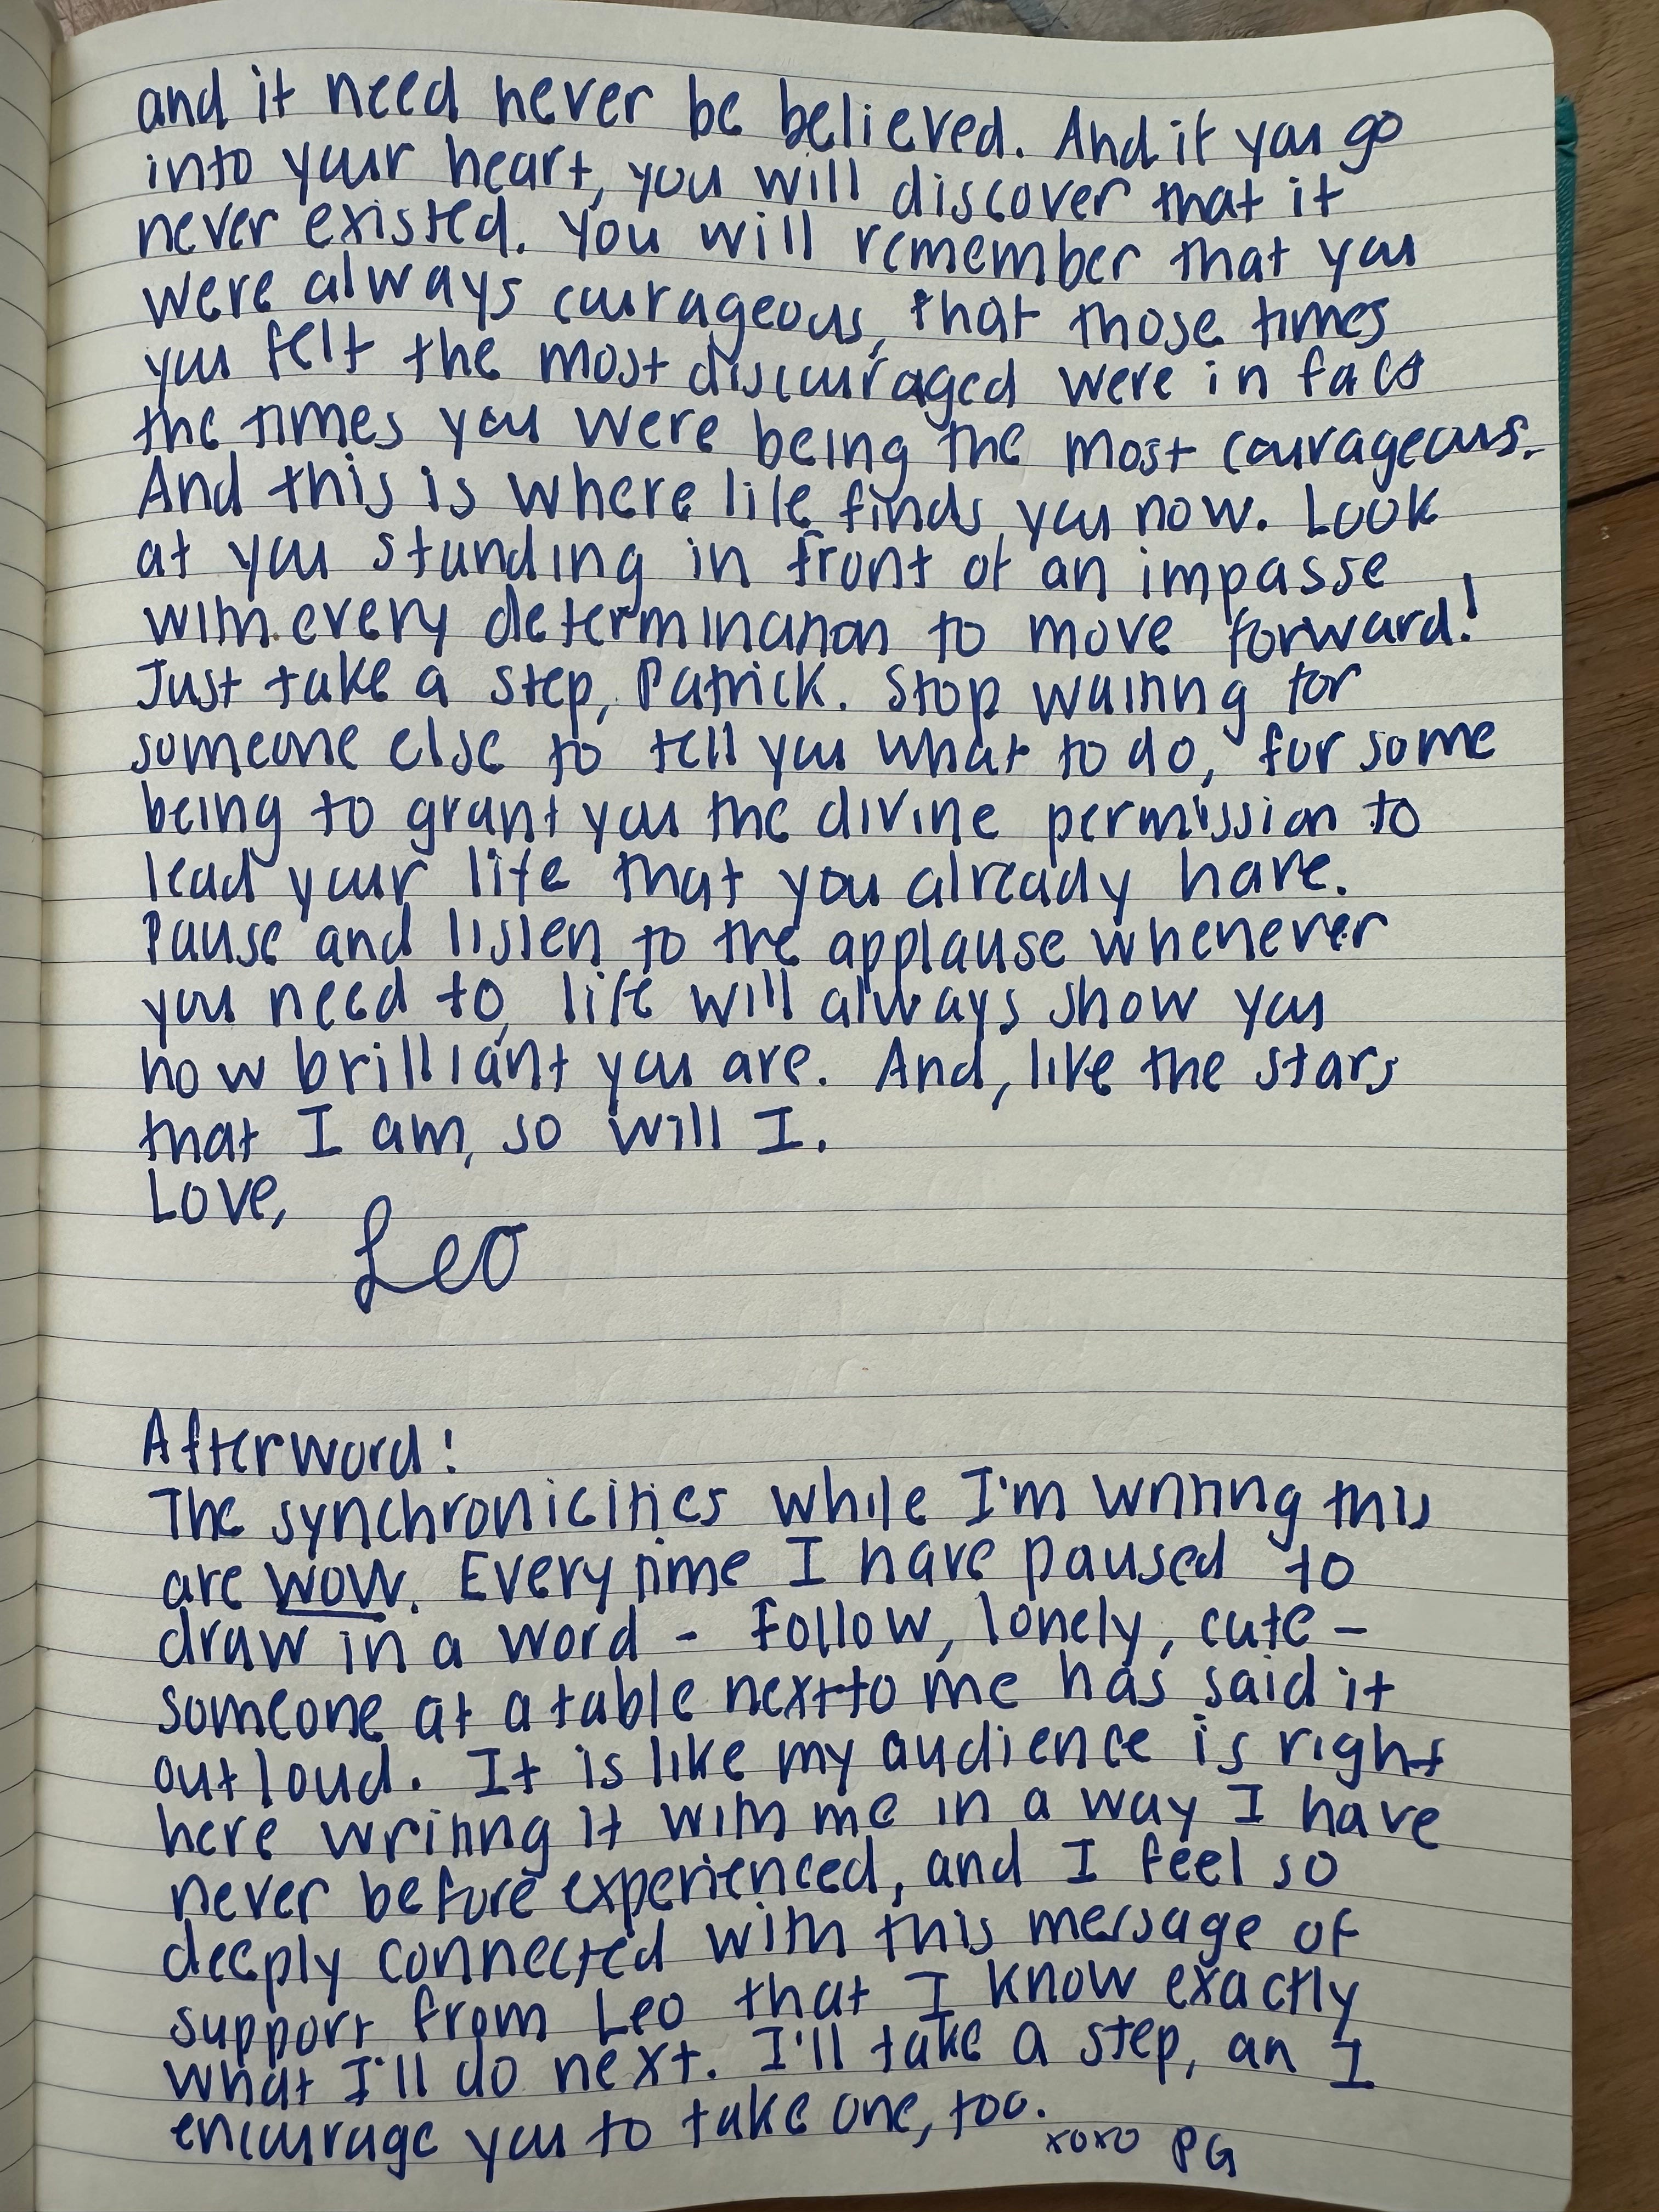 and it need never be believed. And if you go
into your heart, you will discover that it
never existed. You will remember that you
were always courageous, that those times
you felt the most discouraged were in fact
the times you were being the most courageous.
And this is where life finds you now. Look
at you standing in front of an impasse
with every determination to move forward!
Just take a step, Patrick. Stop waiting for
someone else to tell you what to do, for some
being to grant you the divine permission to
lead your life that you already have.
Pause and listen to the applause whenever
you need to, life will always show you
how brilliant you are. And, like the stars
that I am, so will I.
Love,
Leo
Afterword:
The synchronicities while I'm writing this
are wow. Every time I have paused to
draw in a word - Follow, lonely, cute -
someone at a table next to me has said it
out loud. It is like my audience is right
here writing it with me in a way I have
never before experienced, and I feel so
deeply connected with this message of
support from Leo that I know exactly
what I'll do next. I'll take a step, an I
encourage you to take one, too.
xoxo PG